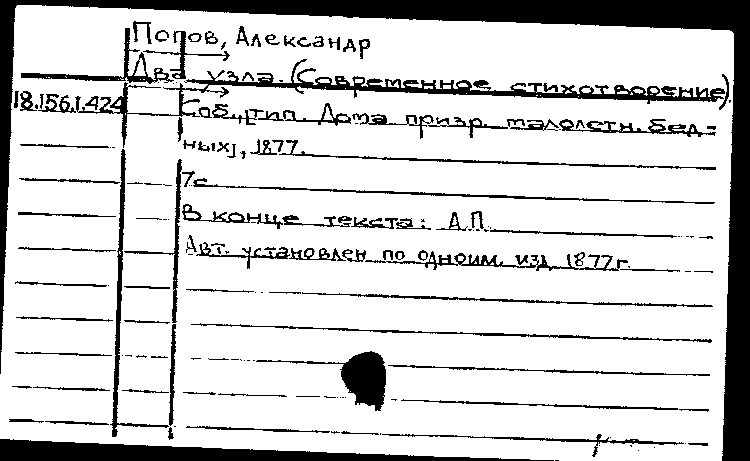 Попов, Александр
Два узла. (Современное стихотворение).
18.156.1.424
Спб., тип. Дома призр. малолетн. бед=
ных], 1877.
7с.
В конце текста: А.П.
Авт. установлен по одноим. изд. 1877г.